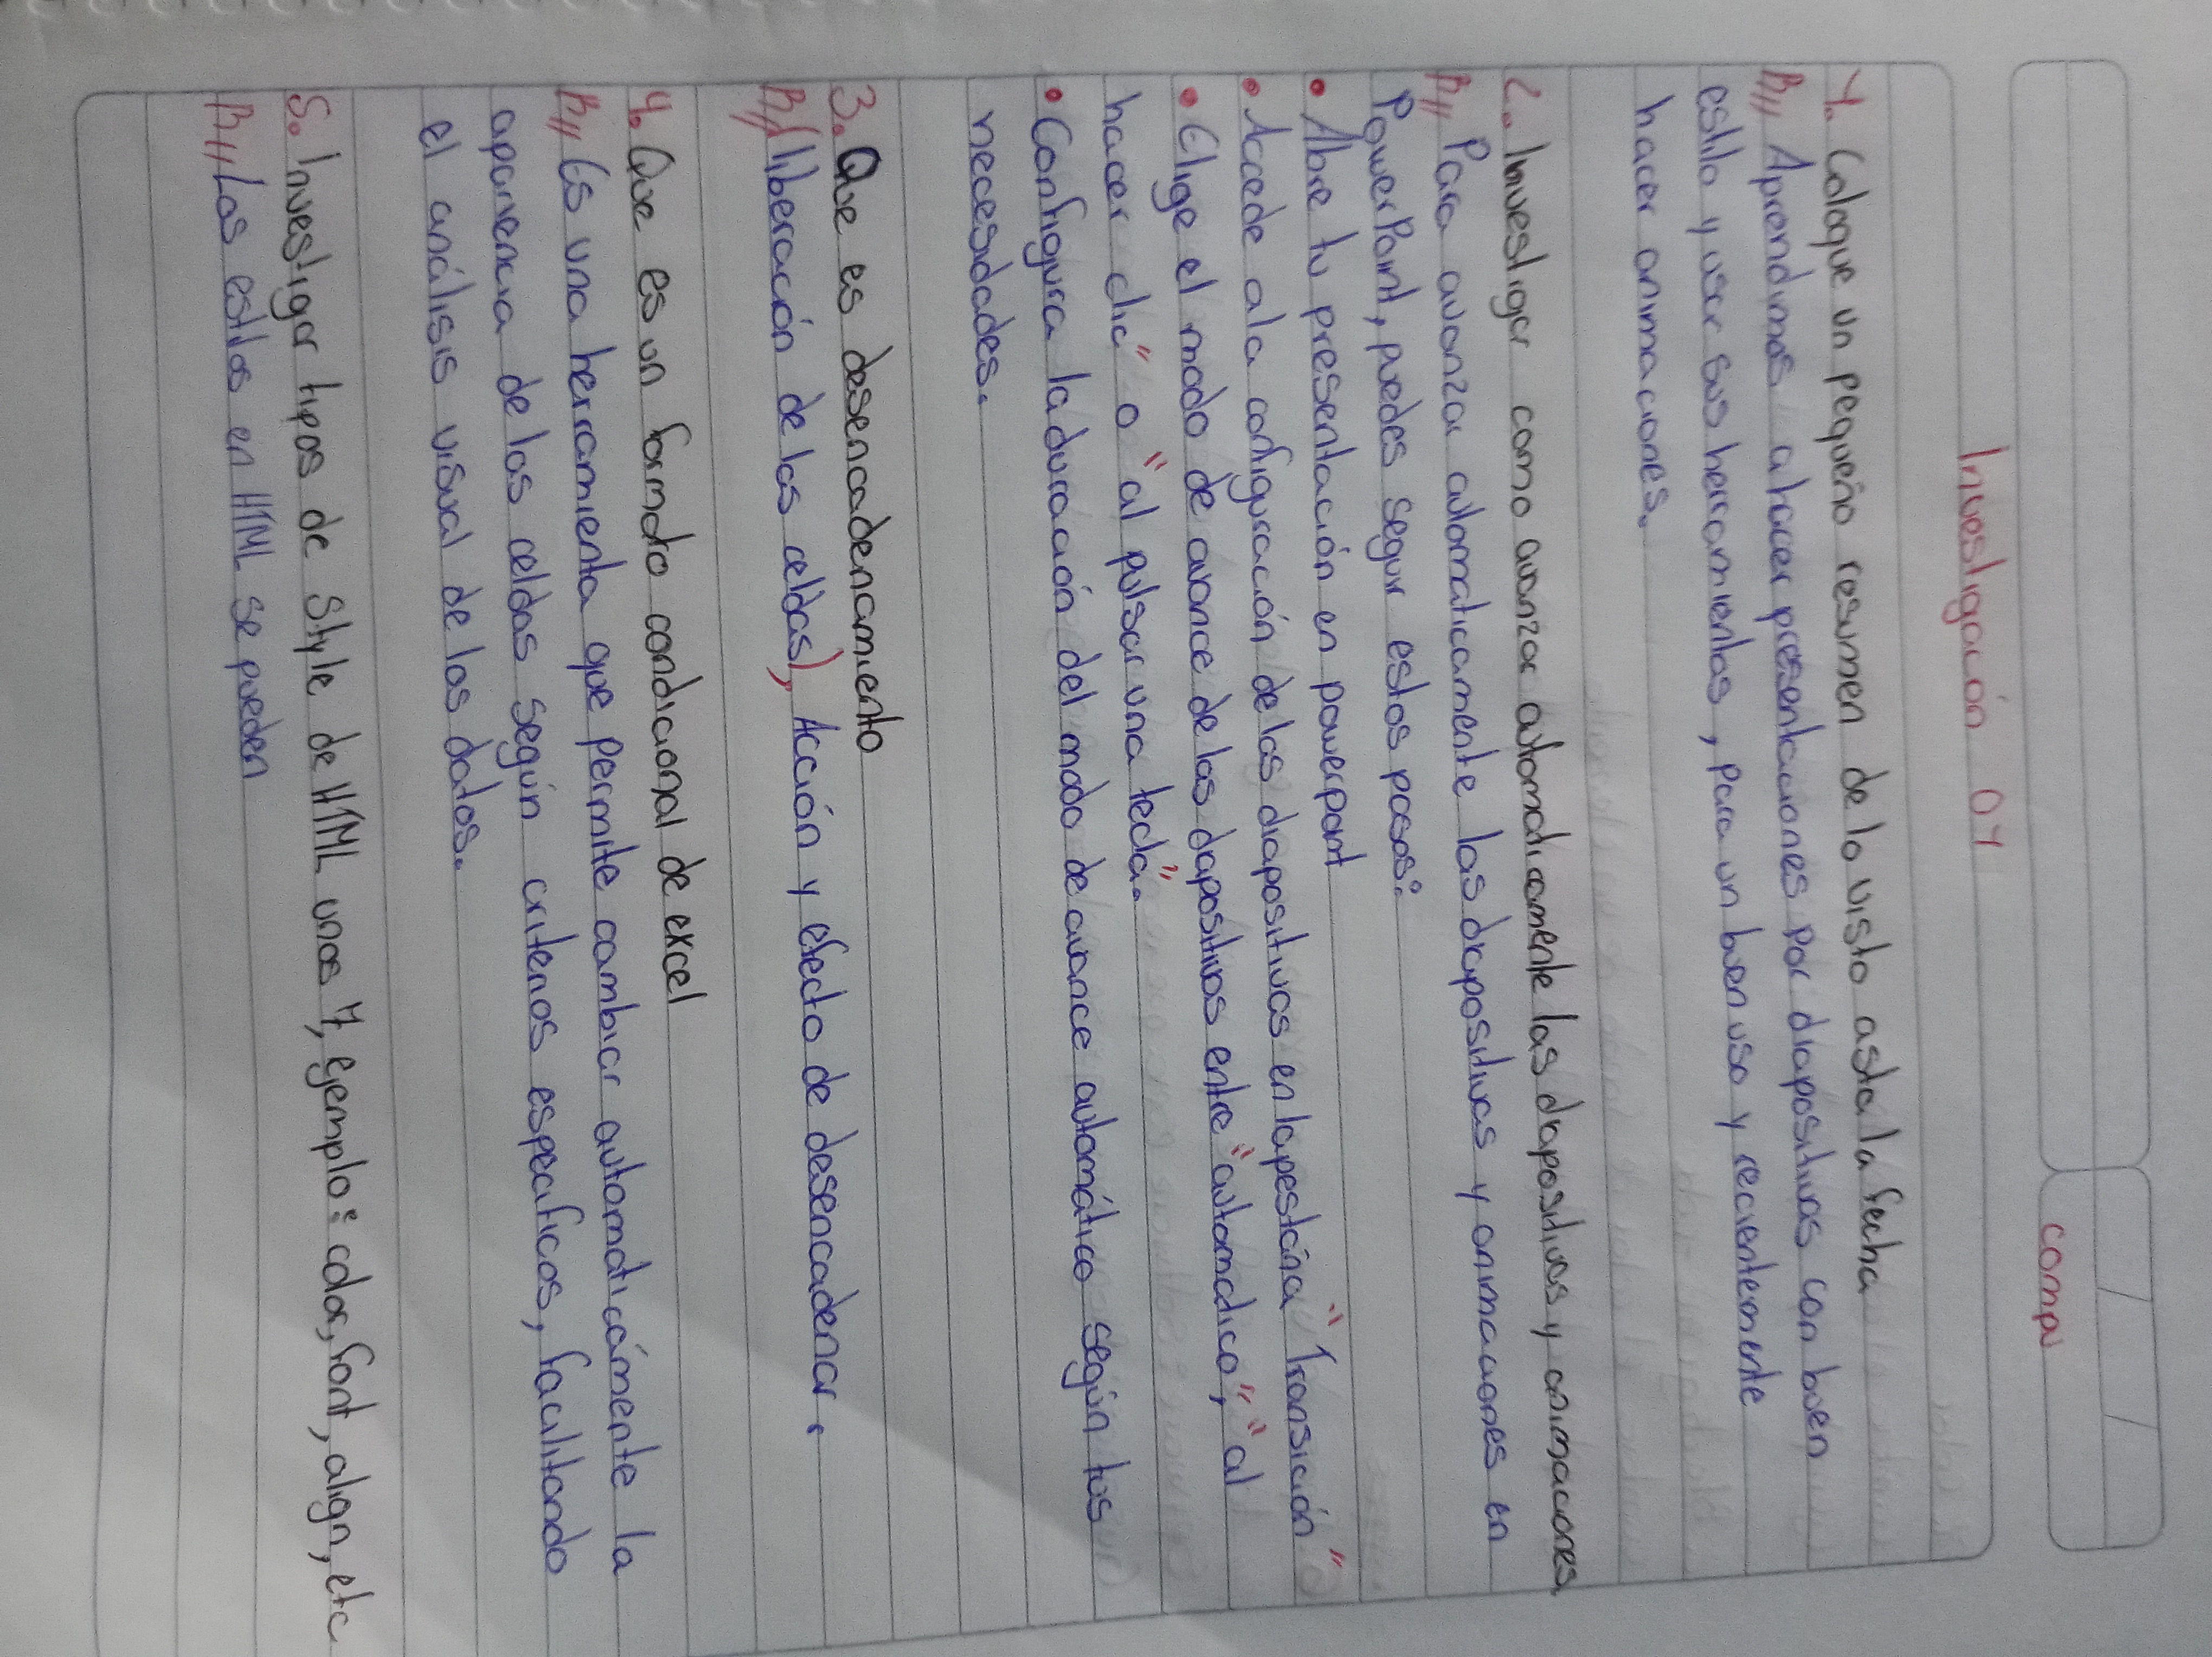 compu
Investigación 01
1. Coloque un pequeño resumen de lo visto asta la fecha
R// Aprendimos a hacer presentaciones por diapositivas con buen
estilo y usar sus herramientas, para un buen uso y recientemente
hacer animaciones.
2. Investigar como avanzar automaticamente las diapositivas y animaciones,
R// Para avanzar automaticamente las diapositivas y animaciones en
PowerPoint, puedes seguir estos pasos:
• Abre tu presentación en powerpoint
• Accede ala configuración de las diapositivas en la pestaña "Transición"
• Elige el modo de avance de las diapositivas entre "automatico", "al
hacer clic" o "al pulsar una tecla".
• Configura la duración del modo de avance automático según tus
necesidades.
3. Que es desencadenamiento
R// (liberación de las celdas), Acción y efecto de desencadenar.
4. Que es un formato condicional de excel
R// Es una herramienta que permite cambiar automáticamente la
apariencia de las celdas según criterios especificos, facilitando
el análisis visual de los datos.
5. Investigar tipos de style de HTML unos 7, ejemplo: color, font, align, etc
R// Los estilos en HTML se pueden